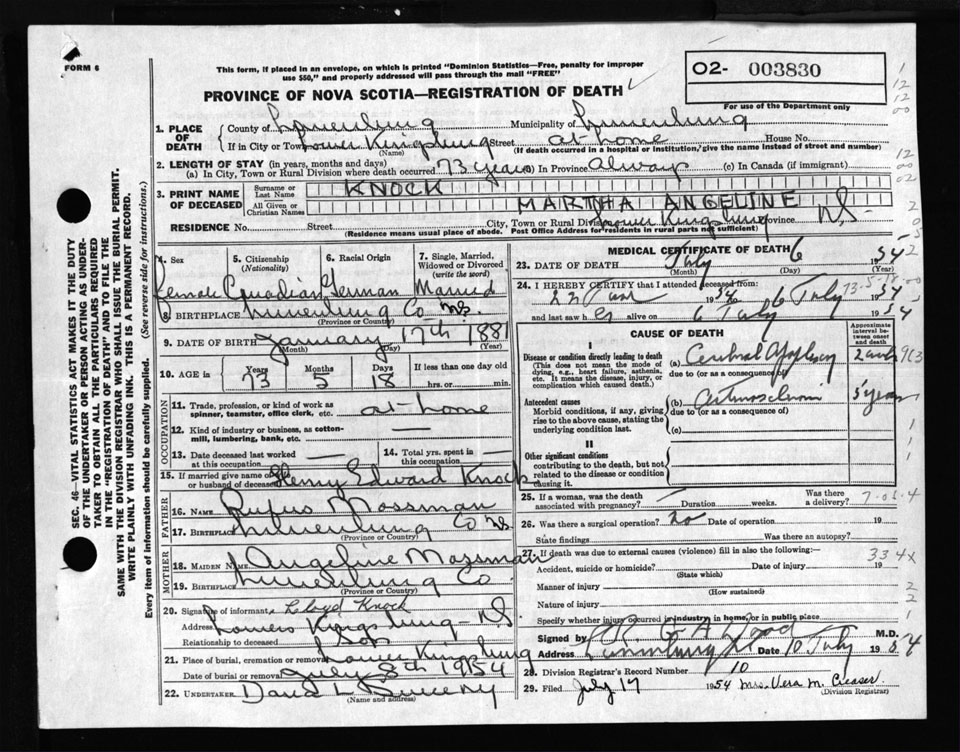 FORM 6
This form, if placed in an envelope, on which is printed "Dominion Statistics—Free, penalty for improper
use $50," and properly addressed will pass through the mail "FREE"
O2- 003830
For use of the Department only
PROVINCE OF NOVA SCOTIA—REGISTRATION OF DEATH
1. PLACE OF DEATH
County of Lunenburg Municipality of Lunenburg
If in City or Town Lower Kingsburg Street at home House No.
(Name) (If death occurred in a hospital or institution, give the name instead of street and number)
2. LENGTH OF STAY (in years, months and days)
(a) In City, Town or Rural Division where death occurred 73 years (b) In Province always (c) In Canada (if immigrant)
3. PRINT NAME OF DECEASED
Surname or Last Name KNOCK
All Given or Christian Names MARTHA ANGELINE
RESIDENCE No. Street City, Town or Rural Division Lower Kingsburg Province N.S.
(Residence means usual place of abode. Post Office Address for residents in rural parts not sufficient)
4. Sex 5. Citizenship (Nationality) 6. Racial Origin 7. Single, Married, Widowed or Divorced (write the word)
Female Canadian German Married
8. BIRTHPLACE Lunenburg Co N.S.
(Province or Country)
9. DATE OF BIRTH January 17th 1881
(Month) (Day) (Year)
10. AGE in Years Months Days If less than one day old
73 5 18 hrs. or min.
OCCUPATION
11. Trade, profession or kind of work as
spinner, teamster, office clerk, etc. at-home
12. Kind of industry or business, as cotton-
mill, lumbering, bank, etc. —
13. Date deceased last worked at this occupation — 14. Total yrs. spent in this occupation —
15. If married give name of wife
or husband of deceased Henry Edward Knock
FATHER
16. Name Rufus Mossman
17. Birthplace Lunenburg Co N.S.
(Province or Country)
MOTHER
18. Maiden Name Angeline Mossman
19. Birthplace Lunenburg Co
(Province or Country)
20. Signature of informant Lloyd Knock
Address Lower Kingsburg - N.S.
Relationship to deceased Son
21. Place of burial, cremation or removal Lower Kingsburg
Date of burial or removal July 8th 1954
22. UNDERTAKER
(Name and address)
MEDICAL CERTIFICATE OF DEATH
23. DATE OF DEATH July 6 1954
(Month) (Day) (Year)
24. I HEREBY CERTIFY that I attended deceased from:
1954 to 6 July 1954
and last saw her alive on 6 July 1954
CAUSE OF DEATH
Approximate interval between onset and death
I
Disease or condition directly leading to death
(This does not mean the mode of dying, e.g., heart failure, asthenia, etc. It means the disease, injury, or complication which caused death.)
(a) Cerebral Apoplexy
due to (or as a consequence of)
Antecedent causes
Morbid conditions, if any, giving rise to the above cause, stating the underlying condition last.
(b) 5 years
due to (or as a consequence of)
(c)
II
Other significant conditions
contributing to the death, but not related to the disease or condition causing it.
25. If a woman, was the death
associated with pregnancy? Duration weeks. Was there a delivery?
26. Was there surgical operation? no Date of operation 19
State findings Was there an autopsy?
27. If death was due to external causes (violence) fill in also the following:—
Accident, suicide or homicide? Date of injury 19
(State which)
Manner of injury
(How sustained)
Nature of injury
Specify whether injury occurred in industry in home, or in public place
Signed by M.D.
Address Lunenburg Date 10 July 1954
28. Division Registrar's Record Number 10
29. Filed July 17 1954 Mrs. Vera M. Creaser
(Division Registrar)
SEC. 46—VITAL STATISTICS ACT MAKES IT THE DUTY
OF THE UNDERTAKER OR PERSON ACTING AS UNDER-
TAKER TO OBTAIN ALL THE PARTICULARS REQUIRED
IN THE "REGISTRATION OF DEATH" AND TO FILE THE
SAME WITH THE DIVISION REGISTRAR WHO SHALL ISSUE THE BURIAL PERMIT.
WRITE PLAINLY WITH UNFADING INK. THIS IS A PERMANENT RECORD.
Every item of information should be carefully supplied. (See reverse side for instructions.)
334x